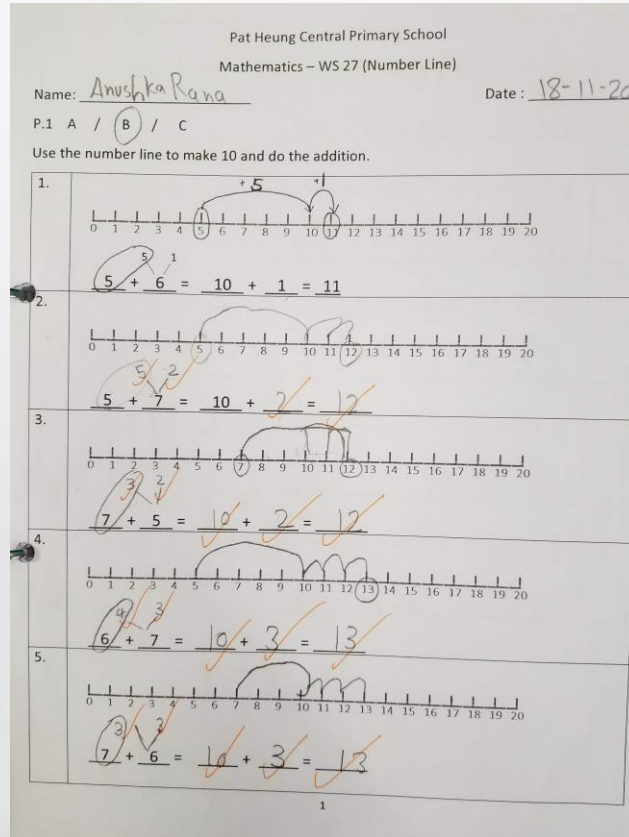 Pat Heung Central Primary School
Mathematics – WS 27 (Number Line)
Name: Anushka Rana Date : 18-11-20
P.1 A / B / C
Use the number line to make 10 and do the addition.
1.
+5 +1
0 1 2 3 4 5 6 7 8 9 10 11 12 13 14 15 16 17 18 19 20
5 1
5 + 6 = 10 + 1 = 11
2.
0 1 2 3 4 5 6 7 8 9 10 11 12 13 14 15 16 17 18 19 20
5 2
5 + 7 = 10 + 2 = 12
3.
0 1 2 3 4 5 6 7 8 9 10 11 12 13 14 15 16 17 18 19 20
3 2
7 + 5 = 10 + 2 = 12
4.
0 1 2 3 4 5 6 7 8 9 10 11 12 13 14 15 16 17 18 19 20
4 3
6 + 7 = 10 + 3 = 13
5.
0 1 2 3 4 5 6 7 8 9 10 11 12 13 14 15 16 17 18 19 20
3 3
7 + 6 = 10 + 3 = 13
1